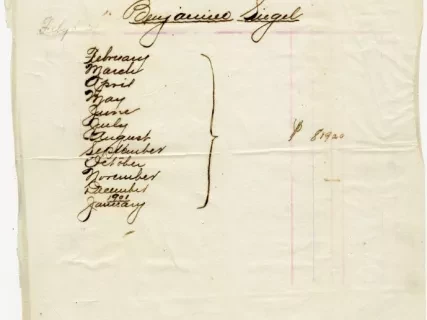 Benjamine Siegel
February
March
April
May
June
July
August
$ 81920
September
October
November
December
1901
January